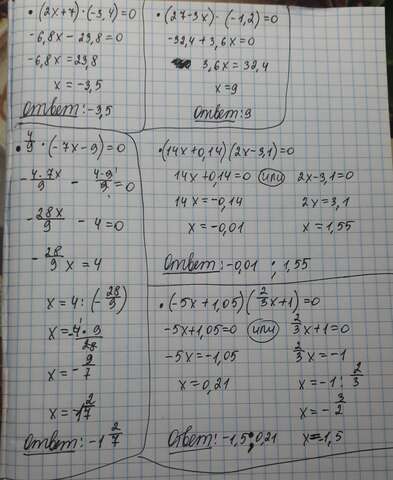 • (2x+7)·(-3,4)=0
-6,8x-23,8=0
-6,8x=23,8
x=-3,5
Ответ: -3,5
• (27-3x)·(-1,2)=0
-32,4+3,6x=0
3,6x=32,4
x=9
Ответ: 9
• 4/9·(-7x-9)=0
-4·7x/9 - 4·9/9=0
-28x/9 - 4=0
-28/9 x=4
x=4:(-28/9)
x=-4·9/28
x=-9/7
x=-1 2/7
Ответ: -1 2/7
• (14x+0,14)(2x-3,1)=0
14x+0,14=0 или 2x-3,1=0
14x=-0,14 2x=3,1
x=-0,01 x=1,55
Ответ: -0,01 ; 1,55
• (-5x+1,05)(2/3x+1)=0
-5x+1,05=0 или 2/3x+1=0
-5x=-1,05 2/3x=-1
x=0,21 x=-1:2/3
x=-3/2
Ответ: -1,5; 0,21 x=-1,5